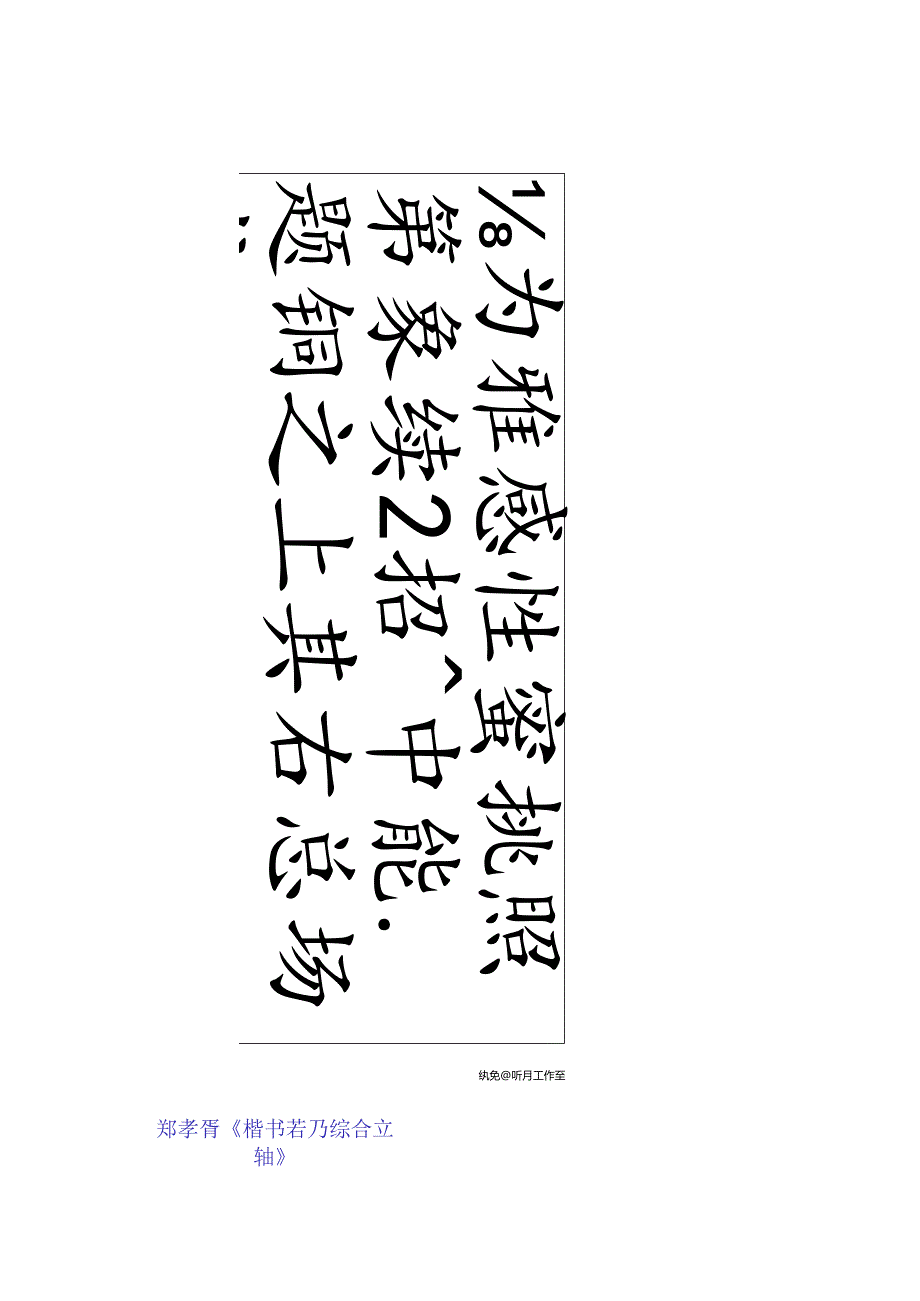 ⅛为雅感性蜜挑照
第象续2招^中能.
题铜之上其右总场
纨免@听月工作至
郑孝胥《楷书若乃综合立
轴》